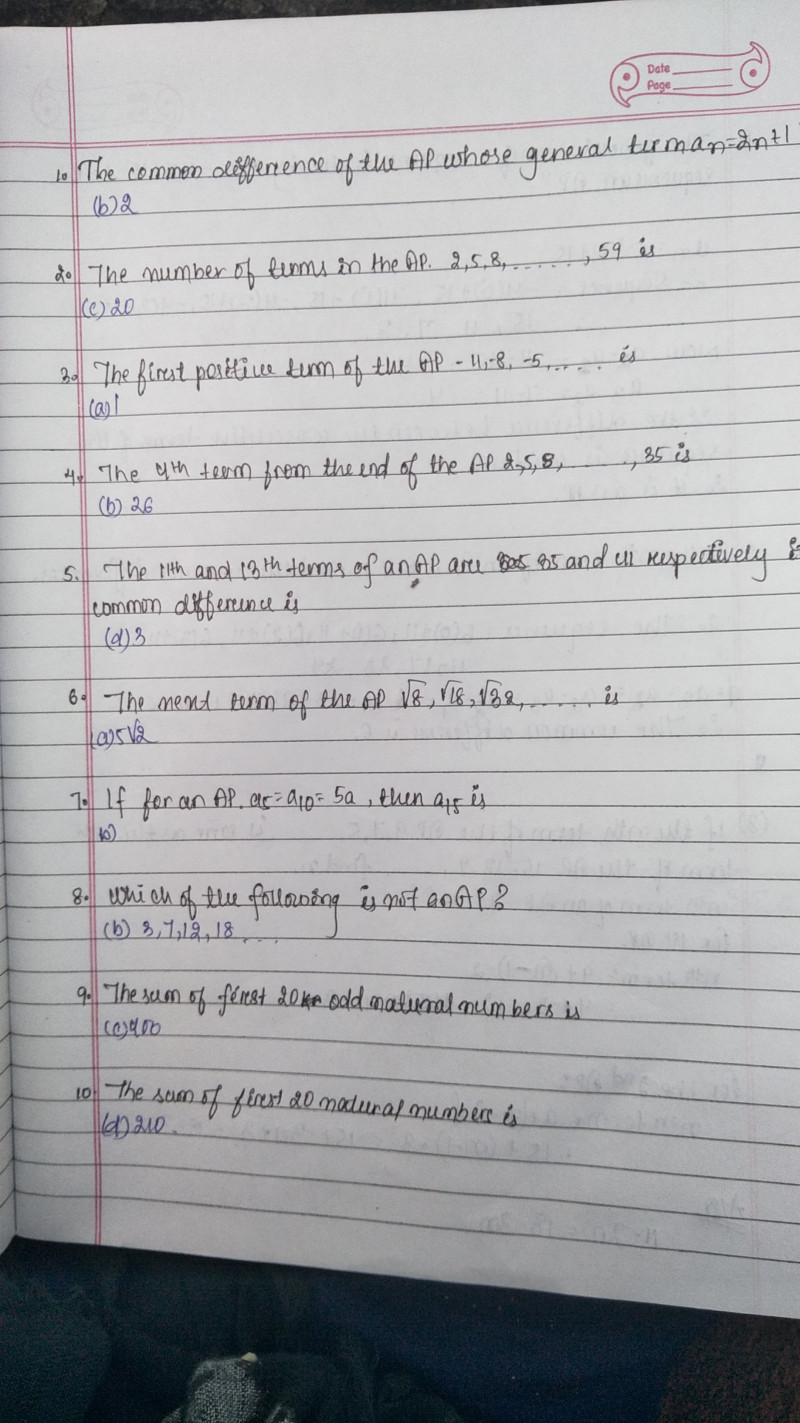 Date
Page
1. The common difference of the AP whose general term an=2n+1
(b) 2
2. The number of terms in the AP. 2,5,8,......., 59 is
(c) 20
3. The first positive term of the AP -11,-8, -5,..... is
(a) 1
4. The 4th term from the end of the AP 2,5,8,......., 35 is
(b) 26
5. The 11th and 13th terms of an AP are 35 and 41 respectively
common difference is
(d) 3
6. The next term of the AP √8, √18, √32,....... is
(a) 5√2
7. If for an AP. a5 = a10 = 5a, then a15 is
8. Which of the following is not an AP?
(b) 3,7,12,18....
9. The sum of first 20 odd natural numbers is
(c) 400
10. The sum of first 20 natural numbers is
(d) 210.